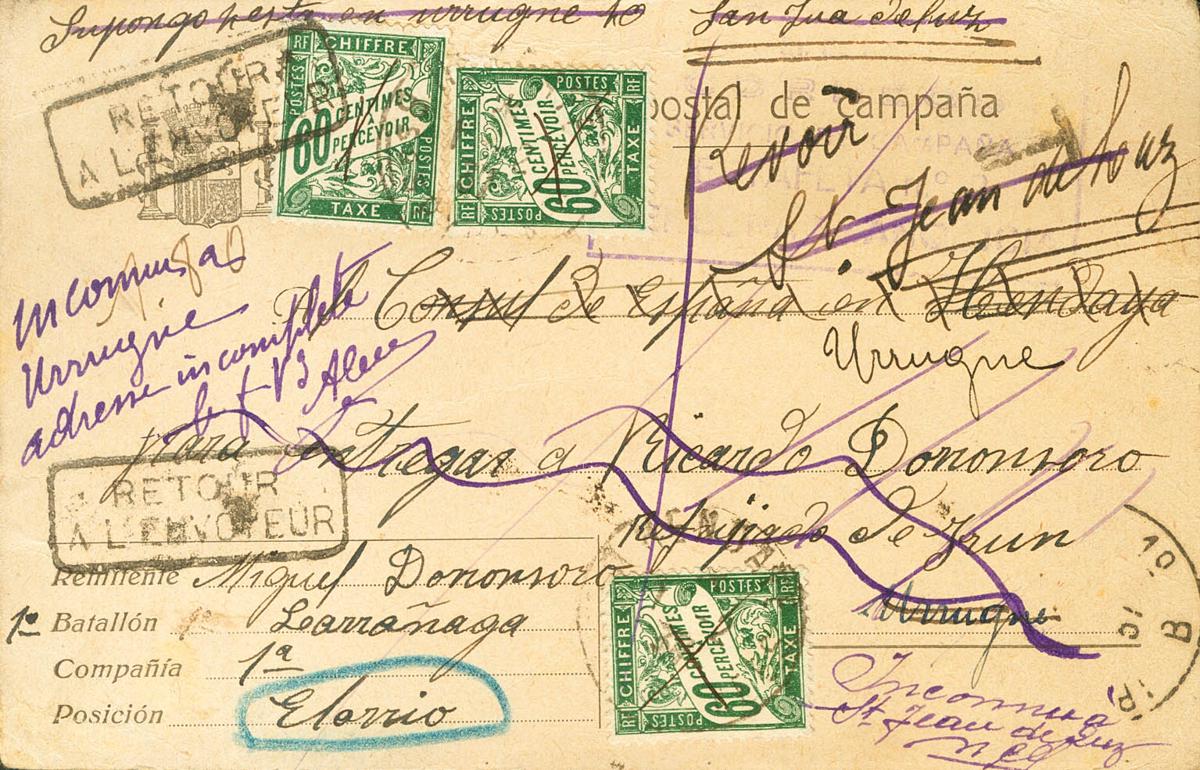 Supongo en urrugne o San Jua de luz
RETOUR
A L'ENVOYEUR
RF CHIFFRE RF
POSTES
60 CENTIMES
À PERCEVOIR
POSTES
TAXE RF
POSTES RF
CHIFFRE
60 CENTIMES
À PERCEVOIR
TAXE
RF POSTES
postal de campaña
Revoir
St Jean de Luz
Inconnu à
Urrugne
adresse incomplète
Al Consul de España en Hendaya
Urrugne
para entregar a Ricardo Dononsoro
refujiado de Irun
Urrugne
RETOUR
A L'ENVOYEUR
Remitente Miguel Dononsoro
1º Batallón Larrañaga
Compañía 1ª
Posición Elorrio
RF POSTES RF
CHIFFRE
60 CENTIMES
À PERCEVOIR
TAXE
RF POSTES
Inconnu à
St Jean de Luz